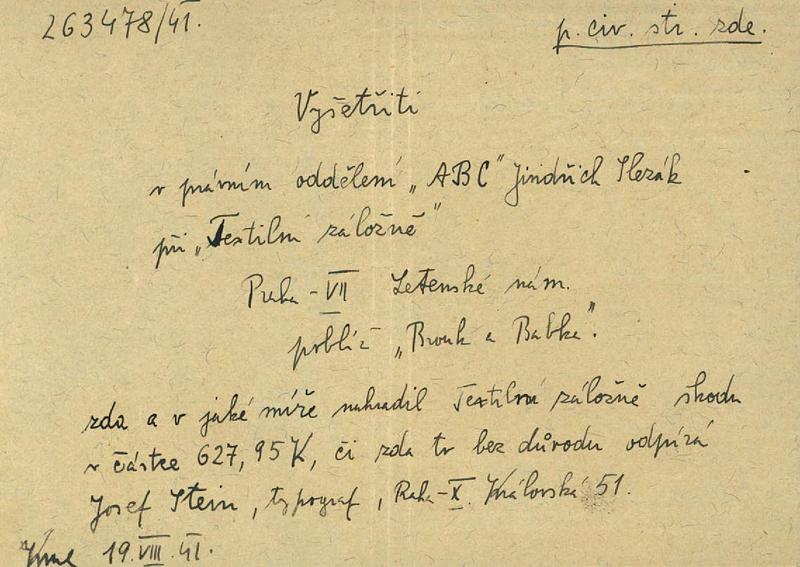 263478/41.
p. civ. str. zde.
Vyšetřiti
v právním oddělení „ABC" Jindřich Slezák
při „Textilní záložně"
Praha - VII Letenské nám.
poblíž „Brouk a Babka".
zda a v jaké míře nahradil Textilní záložně škodu
v částce 627,95 K, či zda tv bez důvodu odpírá
Josef Stein, typograf, Praha - X. Královská 51.
19. VIII. 41.